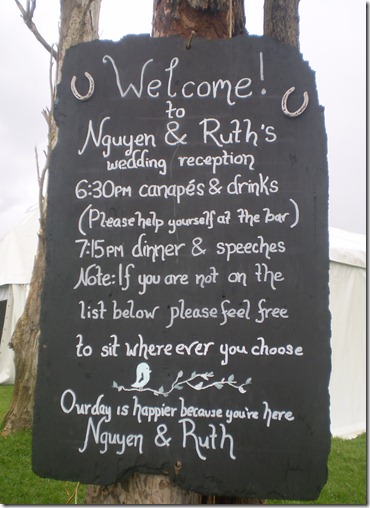 Welcome!
to
Nguyen & Ruth's
wedding reception
6:30PM canapés & drinks
(Please help yourself at the bar)
7:15PM dinner & speeches
Note: If you are not on the
list below please feel free
to sit where ever you choose
Our day is happier because you're here
Nguyen & Ruth